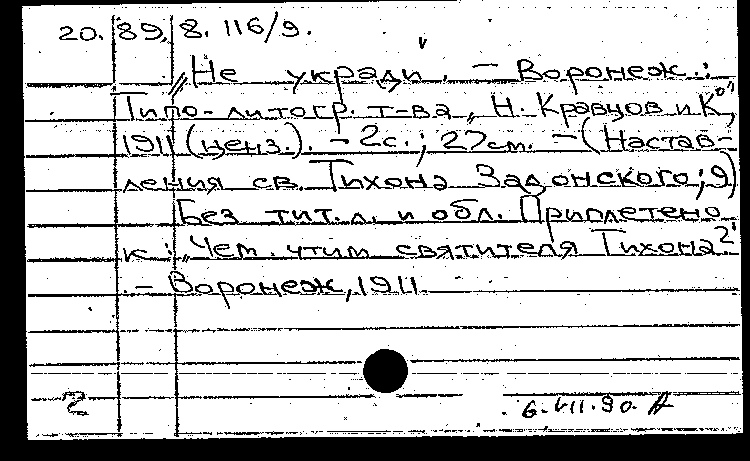 20. 89. 8. 116/9.
„Не укради. – Воронеж.:
Типо-литогр. т-ва „Н. Кравцов и К°",
1911 (ценз.). – 2с.; 27см. – (Настав-
ления св. Тихона Задонского; 9)
Без тит. л. и обл. Приплетено
к: „Чем чтим святителя Тихона?"
– Воронеж, 1911.
2
6.VII.90.